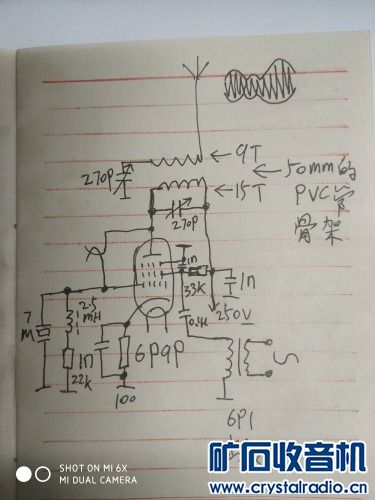 9T
270P
50mm的
15T
PVC管
骨架
270P
1n
1n
33K
2.5
mH
0.1u
250V
7
M
1n
22K
6P9P
100
6P1
SHOT ON MI 6X
MI DUAL CAMERA
矿石收音机
www.crystalradio.cn